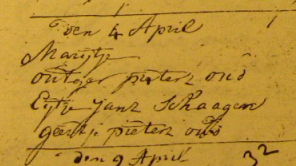 den 4 April
Marijtje
outger pieterz oud
Eijtje Janz Schaagen
geertje pieterz oud
den 9 April 32